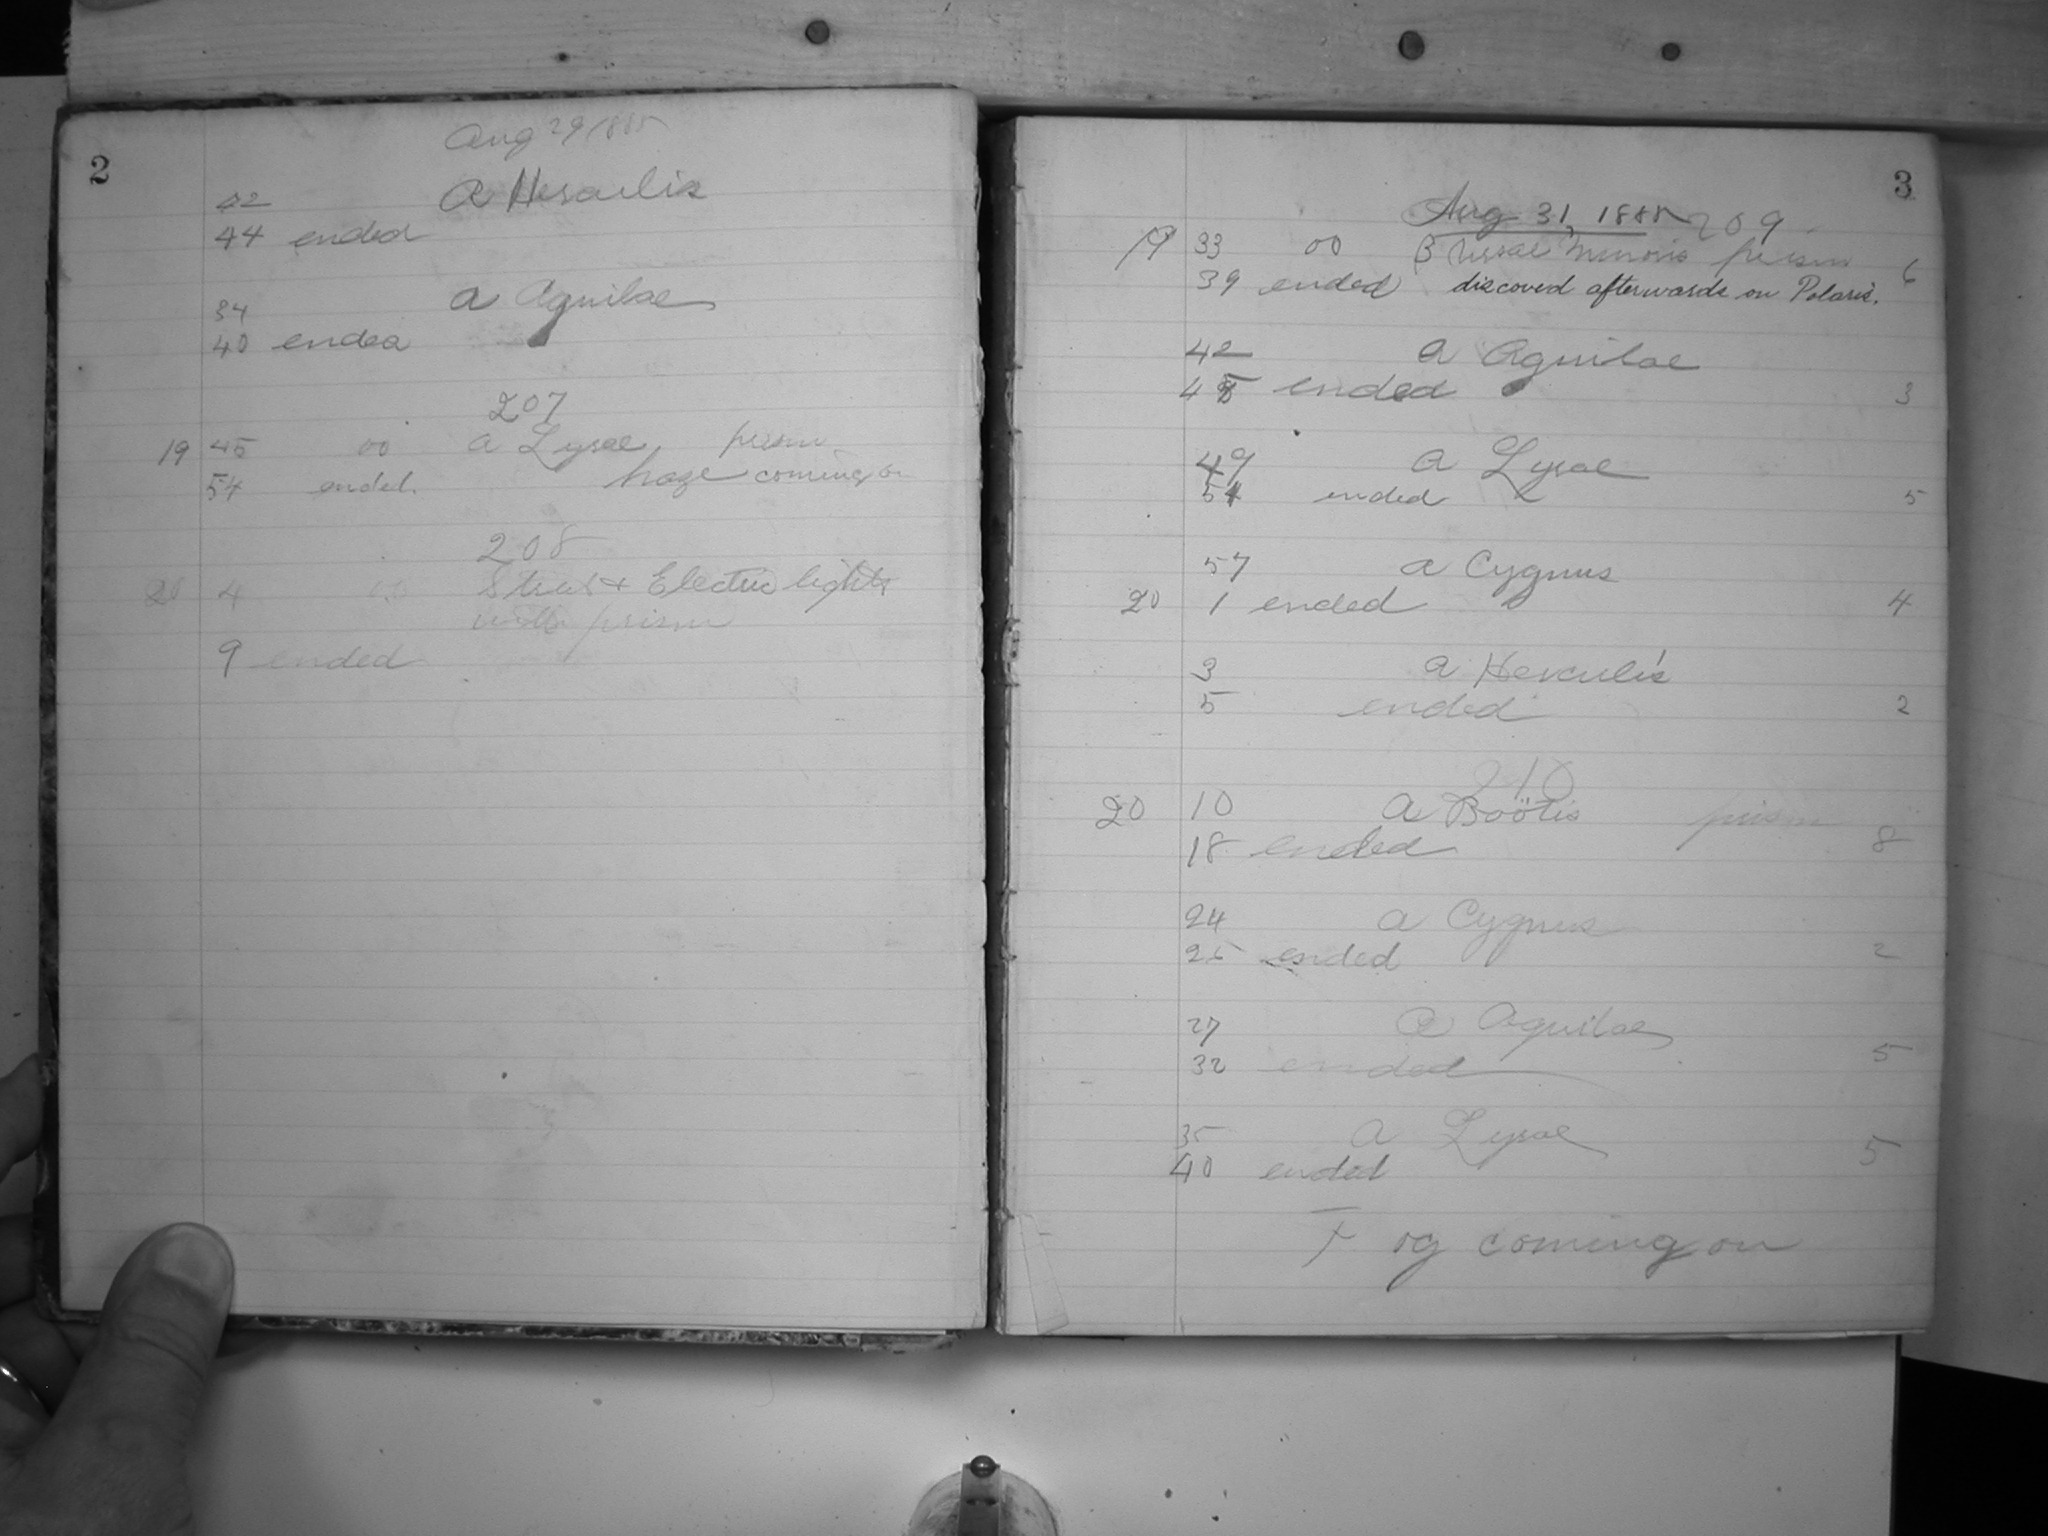 2
Aug 29 1885
42 a Herculis
44 ended
34 a Aquilae
40 ended
207
19 45 00 a Lyrae prism
54 ended. haze coming on
208
20 4 00 Street Electric lights
with prism
9 ended
3
Aug 31, 1885 209
19 33 00 β Ursae Minoris prism
39 ended discoved afterwards on Polaris. 6
42 a Aquilae
45 ended 3
49 a Lyrae
54 ended 5
57 a Cygnus
20 1 ended 4
3 a Herculis
5 ended 2
210
20 10 a Boötis prism
18 ended 8
24 a Cygnus
26 ended 2
27 a Aquilae
32 ended 5
35 a Lyrae
40 ended 5
Fog coming on